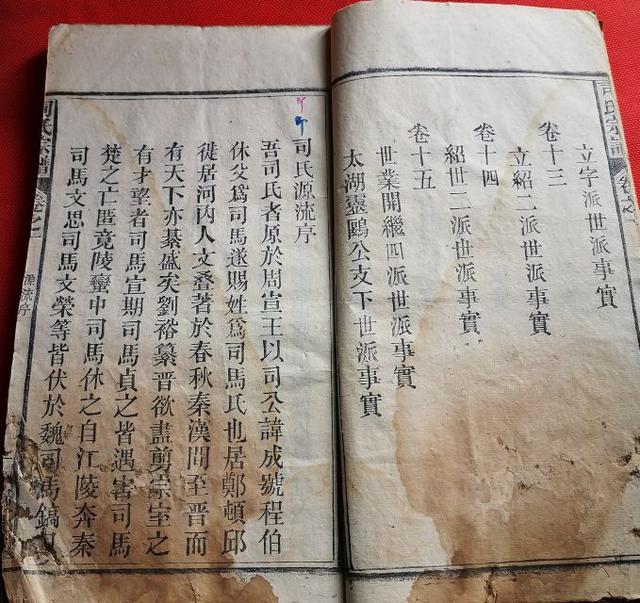 司氏宗譜
卷之
立字派世派事實
卷十三
立紹二派世派事實
卷十四
紹世二派世派事實
卷十五
世業開繼四派世派事實
太湖靈鷗公支下世派事實
司氏源流序
吾司氏者原於周宣王以司公諱成號程伯
休父爲司馬遂賜姓爲司馬氏也居鄭頓邱
徙居河內人文叠著於春秋秦漢間至晉而
有天下亦綦盛矣劉裕纂晉欲盡剪宗室之
有才望者司馬宣期司馬貞之皆遇害司馬
楚之亡匿竟陵蠻中司馬休之自江陵奔秦
司馬文思司馬文榮等皆伏於魏司馬鎬
司氏宗譜
卷之一
源流序